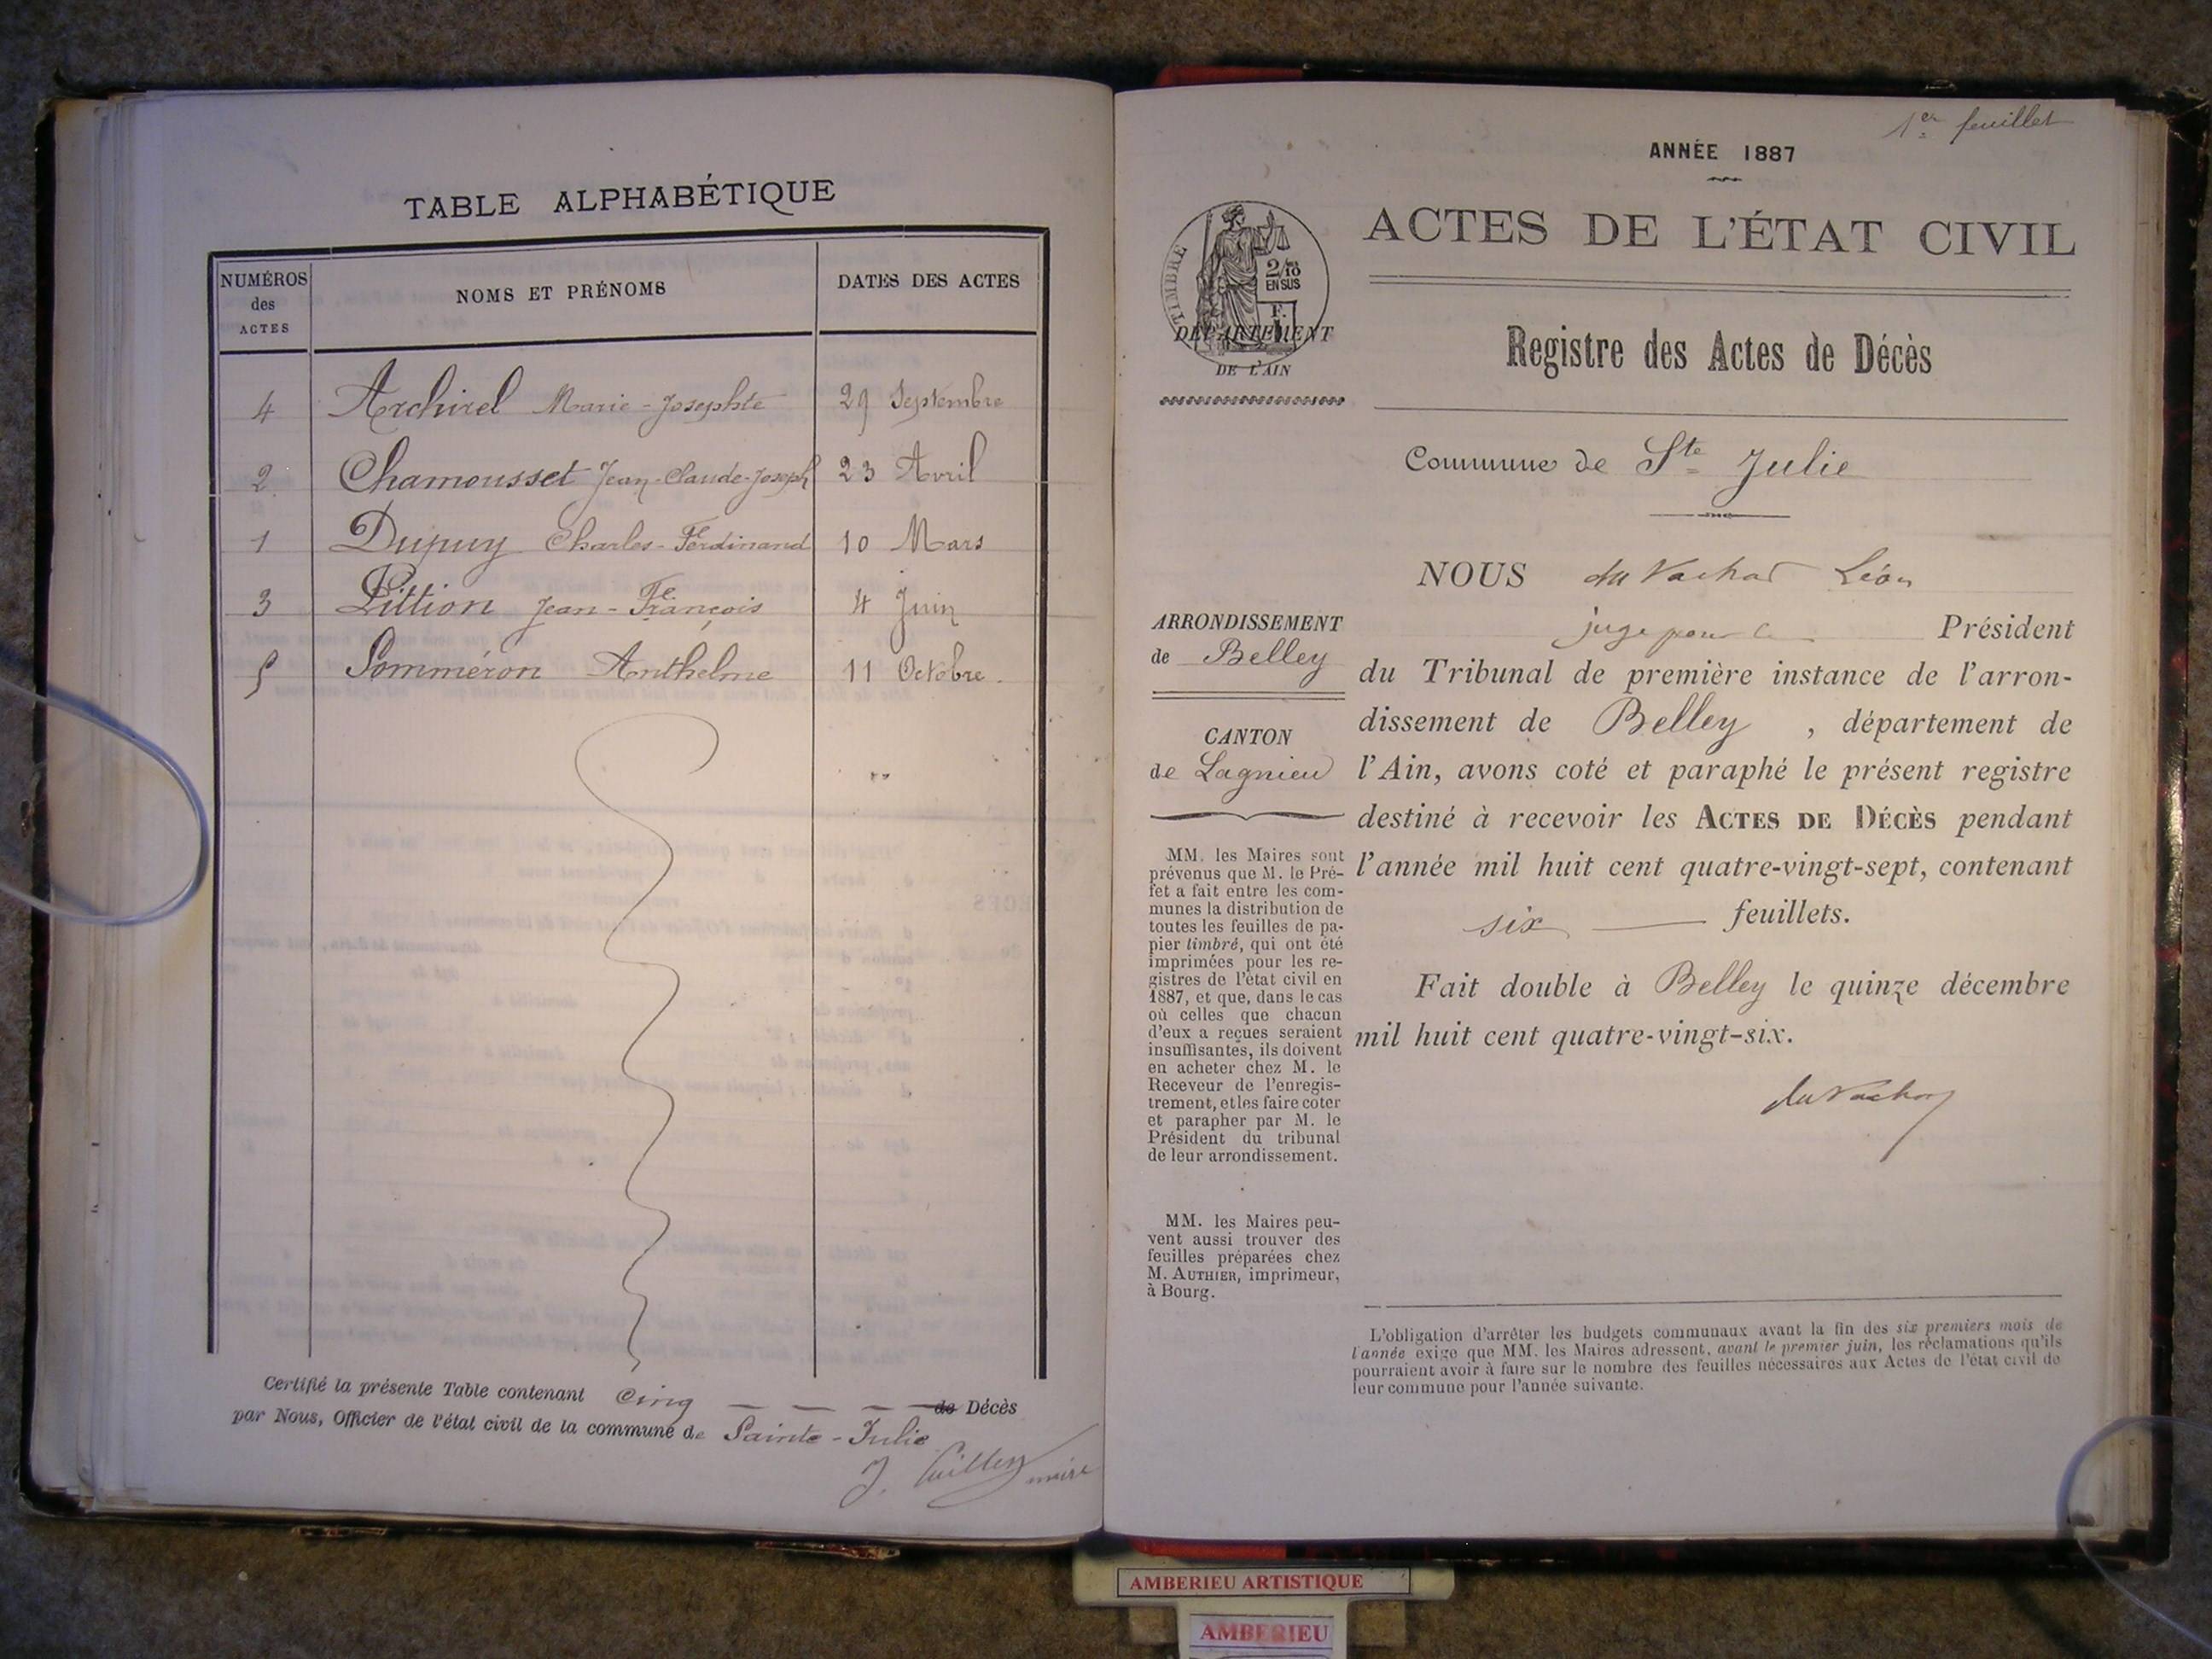 TABLE ALPHABÉTIQUE
NUMÉROS
des
ACTES
NOMS ET PRÉNOMS
DATES DES ACTES
4 Archirel Marie-Josephte 29 Septembre
2 Chamousset Jean-Claude-Joseph 23 Avril
1 Dupuy Charles-Ferdinand 10 Mars
3 Littion Jean-François 4 Juin
5 Sommeron Anthelme 11 Octobre
Certifié la présente Table contenant cinq de Décès
par Nous, Officier de l'état civil de la commune de Sainte-Julie
J. maire
1er feuillet
ANNÉE 1887
TIMBRE
2/10
EN SUS
F.
DÉPARTEMENT
DE L'AIN
ACTES DE L'ÉTAT CIVIL
Registre des Actes de Décès
Commune de Ste Julie
ARRONDISSEMENT
de Belley
CANTON
de Lagnieu
MM. les Maires sont
prévenus que M. le Pré-
fet a fait entre les com-
munes la distribution de
toutes les feuilles de pa-
pier timbré, qui ont été
imprimées pour les re-
gistres de l'état civil en
1887, et que, dans le cas
où celles que chacun
d'eux a reçues seraient
insuffisantes, ils doivent
en acheter chez M. le
Receveur de l'enregis-
trement, et les faire coter
et parapher par M. le
Président du tribunal
de leur arrondissement.
MM. les Maires peu-
vent aussi trouver des
feuilles préparées chez
M. AUTHIER, imprimeur,
à Bourg.
NOUS du Vachat Léon
juge pour le Président
du Tribunal de première instance de l'arron-
dissement de Belley , département de
l'Ain, avons coté et paraphé le présent registre
destiné à recevoir les ACTES DE DÉCÈS pendant
l'année mil huit cent quatre-vingt-sept, contenant
six feuillets.
Fait double à Belley le quinze décembre
mil huit cent quatre-vingt-six.
du Vachat
L'obligation d'arrêter les budgets communaux avant la fin des six premiers mois de
l'année exige que MM. les Maires adressent, avant le premier juin, les réclamations qu'ils
pourraient avoir à faire sur le nombre des feuilles nécessaires aux Actes de l'état civil de
leur commune pour l'année suivante.
AMBERIEU ARTISTIQUE
AMBERIEU